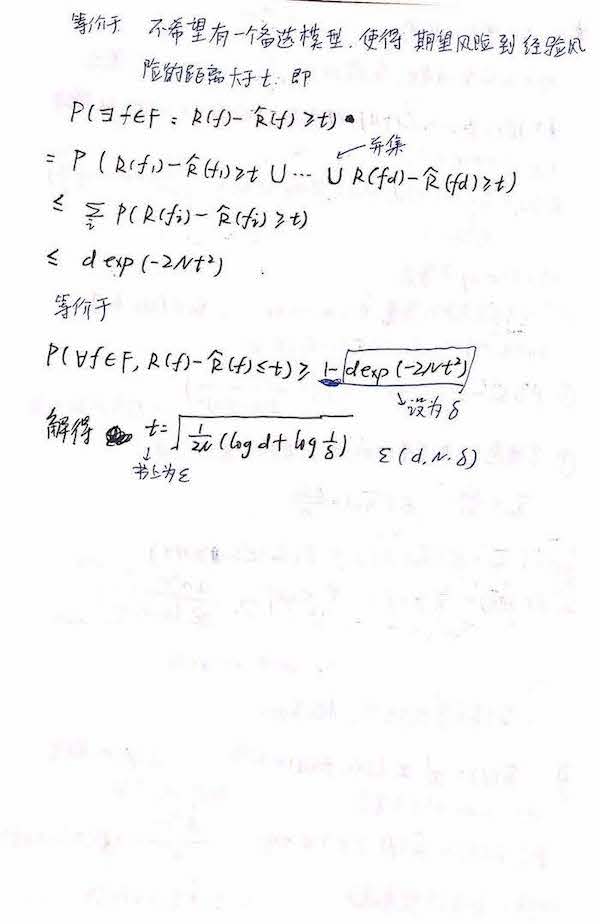 等价于 不希望有一个备选模型，使得 期望风险到经验风
险的距离大于t. 即
P(∃f∈F : R(f)-R̂(f)≥t)
并集
= P ( R(f₁)-R̂(f₁)≥t ∪ ⋯ ∪ R(fd)-R̂(fd)≥t)
≤ ∑ᵢ P(R(fᵢ)-R̂(fᵢ)≥t)
≤ d exp(-2Nt²)
等价于
P(∀f∈F, R(f)-R̂(f)<t) ≥ 1-dexp(-2Nt²)
设为 δ
解得 t=√(1/2N (log d+log 1/δ)) ε(d, N, δ)
书上为ε